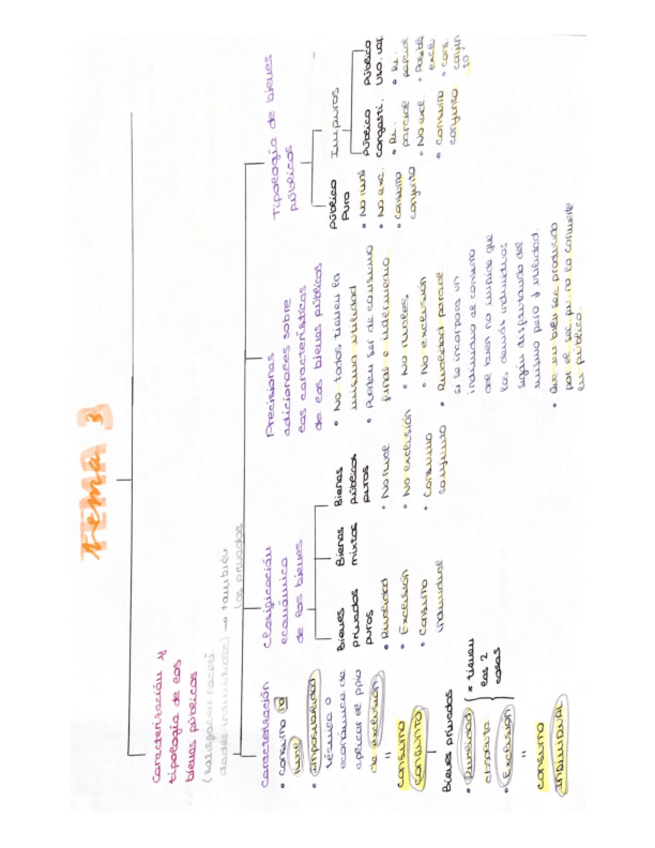 Tema 3
Caracterización y
tipología de los
bienes públicos
(satisfacen necesi
dades individuales) → también
los privados
Caracterización
• Consumo
• Imposibilidad
técnica o
económica de
aplicar el ppio
de exclusión
"
consumo
conjunto
Bienes privados
• Rivalidad
absoluta
• Exclusión
* tienen
las 2
cosas
"
consumo
individual
Clasificación
económica
de los bienes
Bienes
privados
puros
• Rivalidad
• Exclusión
• Consumo
individual
Bienes
mixtos
Bienes
públicos
puros
• No rival
• No exclusión
• Consumo
conjunto
Precisiones
adicionales sobre
las características
de los bienes públicos
• No todos tienen la
misma utilidad
• Pueden ser de consumo
final e intermedio
• No rivales
• No exclusión
• Rivalidad parcial.
si se incorpora un
individuo al consumo
del bien no impide que
los demás individuos
sigan disfrutando del
mismo pero ↓ utilidad.
• Que un bien sea producido
por el sec. pu. no lo convierte
en público.
Tipología de bienes
públicos
Público
Puro
• No rival
• No exc.
• Consumo
conjunto
Impuros
Público
congesti.
• Ri.
parcial
• No excl.
• Consumo
conjunto
Público
uso. vol
• Ri.
parcial
• Posible
excl.
• Cons.
conjun
to